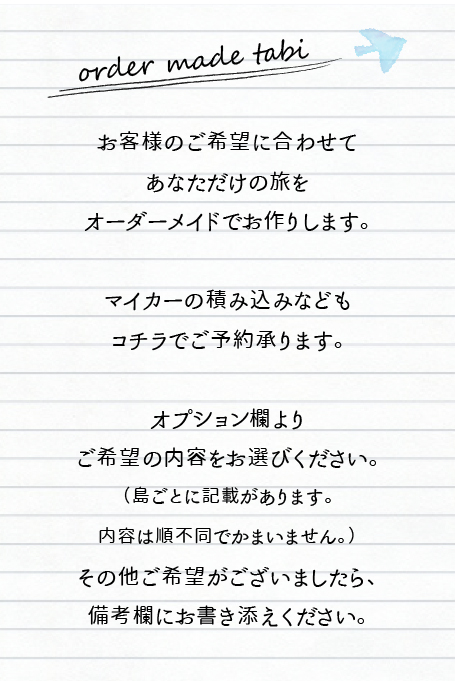 order made tabi
お客様のご希望に合わせて
あなただけの旅を
オーダーメイドでお作りします。
マイカーの積み込みなども
コチラでご予約承ります。
オプション欄より
ご希望の内容をお選びください。
（島ごとに記載があります。
内容は順不同でかまいません。）
その他ご希望がございましたら、
備考欄にお書き添えください。